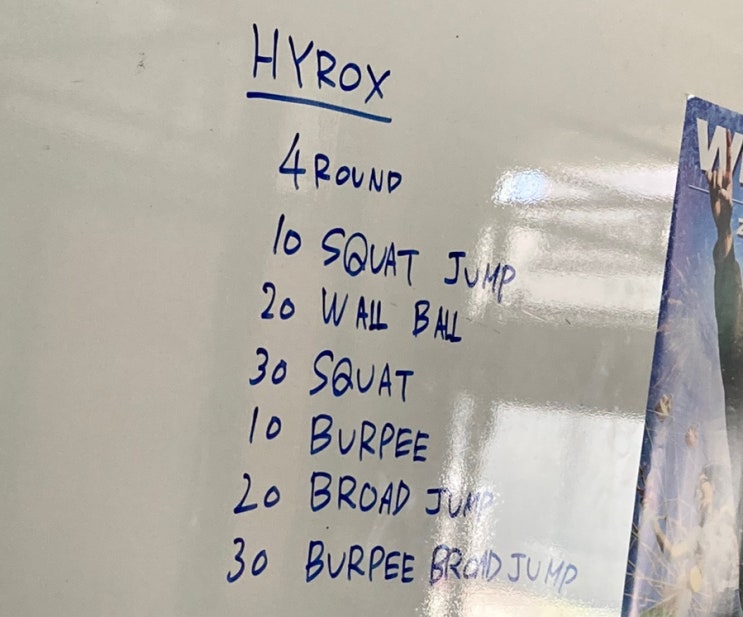 HYROX
4 ROUND
10 SQUAT JUMP
20 WALL BALL
30 SQUAT
10 BURPEE
20 BROAD JUMP
30 BURPEE BROAD JUMP